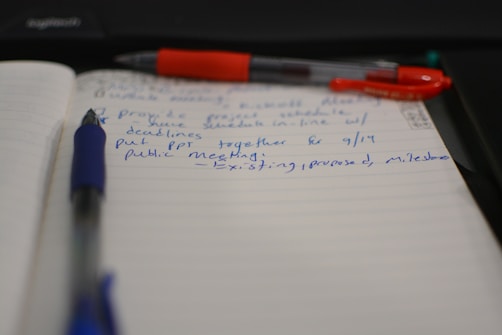 logitech
Update meeting, - Kickoff Meeting
provide project schedule
- Share schedule in-line w/
deadlines
put PPT together for 9/19
public meeting:
- Existing, proposed, milestone